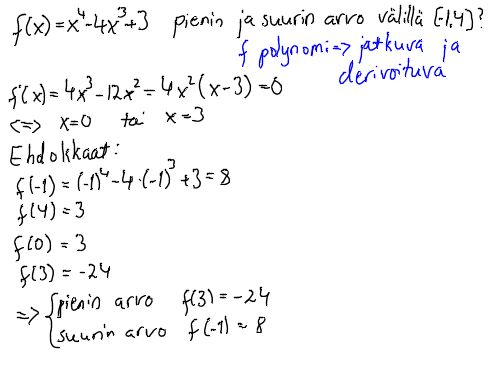 f(x)=x⁴-4x³+3 pienin ja suurin arvo välillä [-1,4]?
f polynomi=> jatkuva ja
derivoituva
f'(x)=4x³-12x²=4x²(x-3)=0
<=> x=0 tai x=3
Ehdokkaat:
f(-1)=(-1)⁴-4·(-1)³+3=8
f(4)=3
f(0)=3
f(3)=-24
=> { pienin arvo f(3)=-24
suurin arvo f(-1)=8